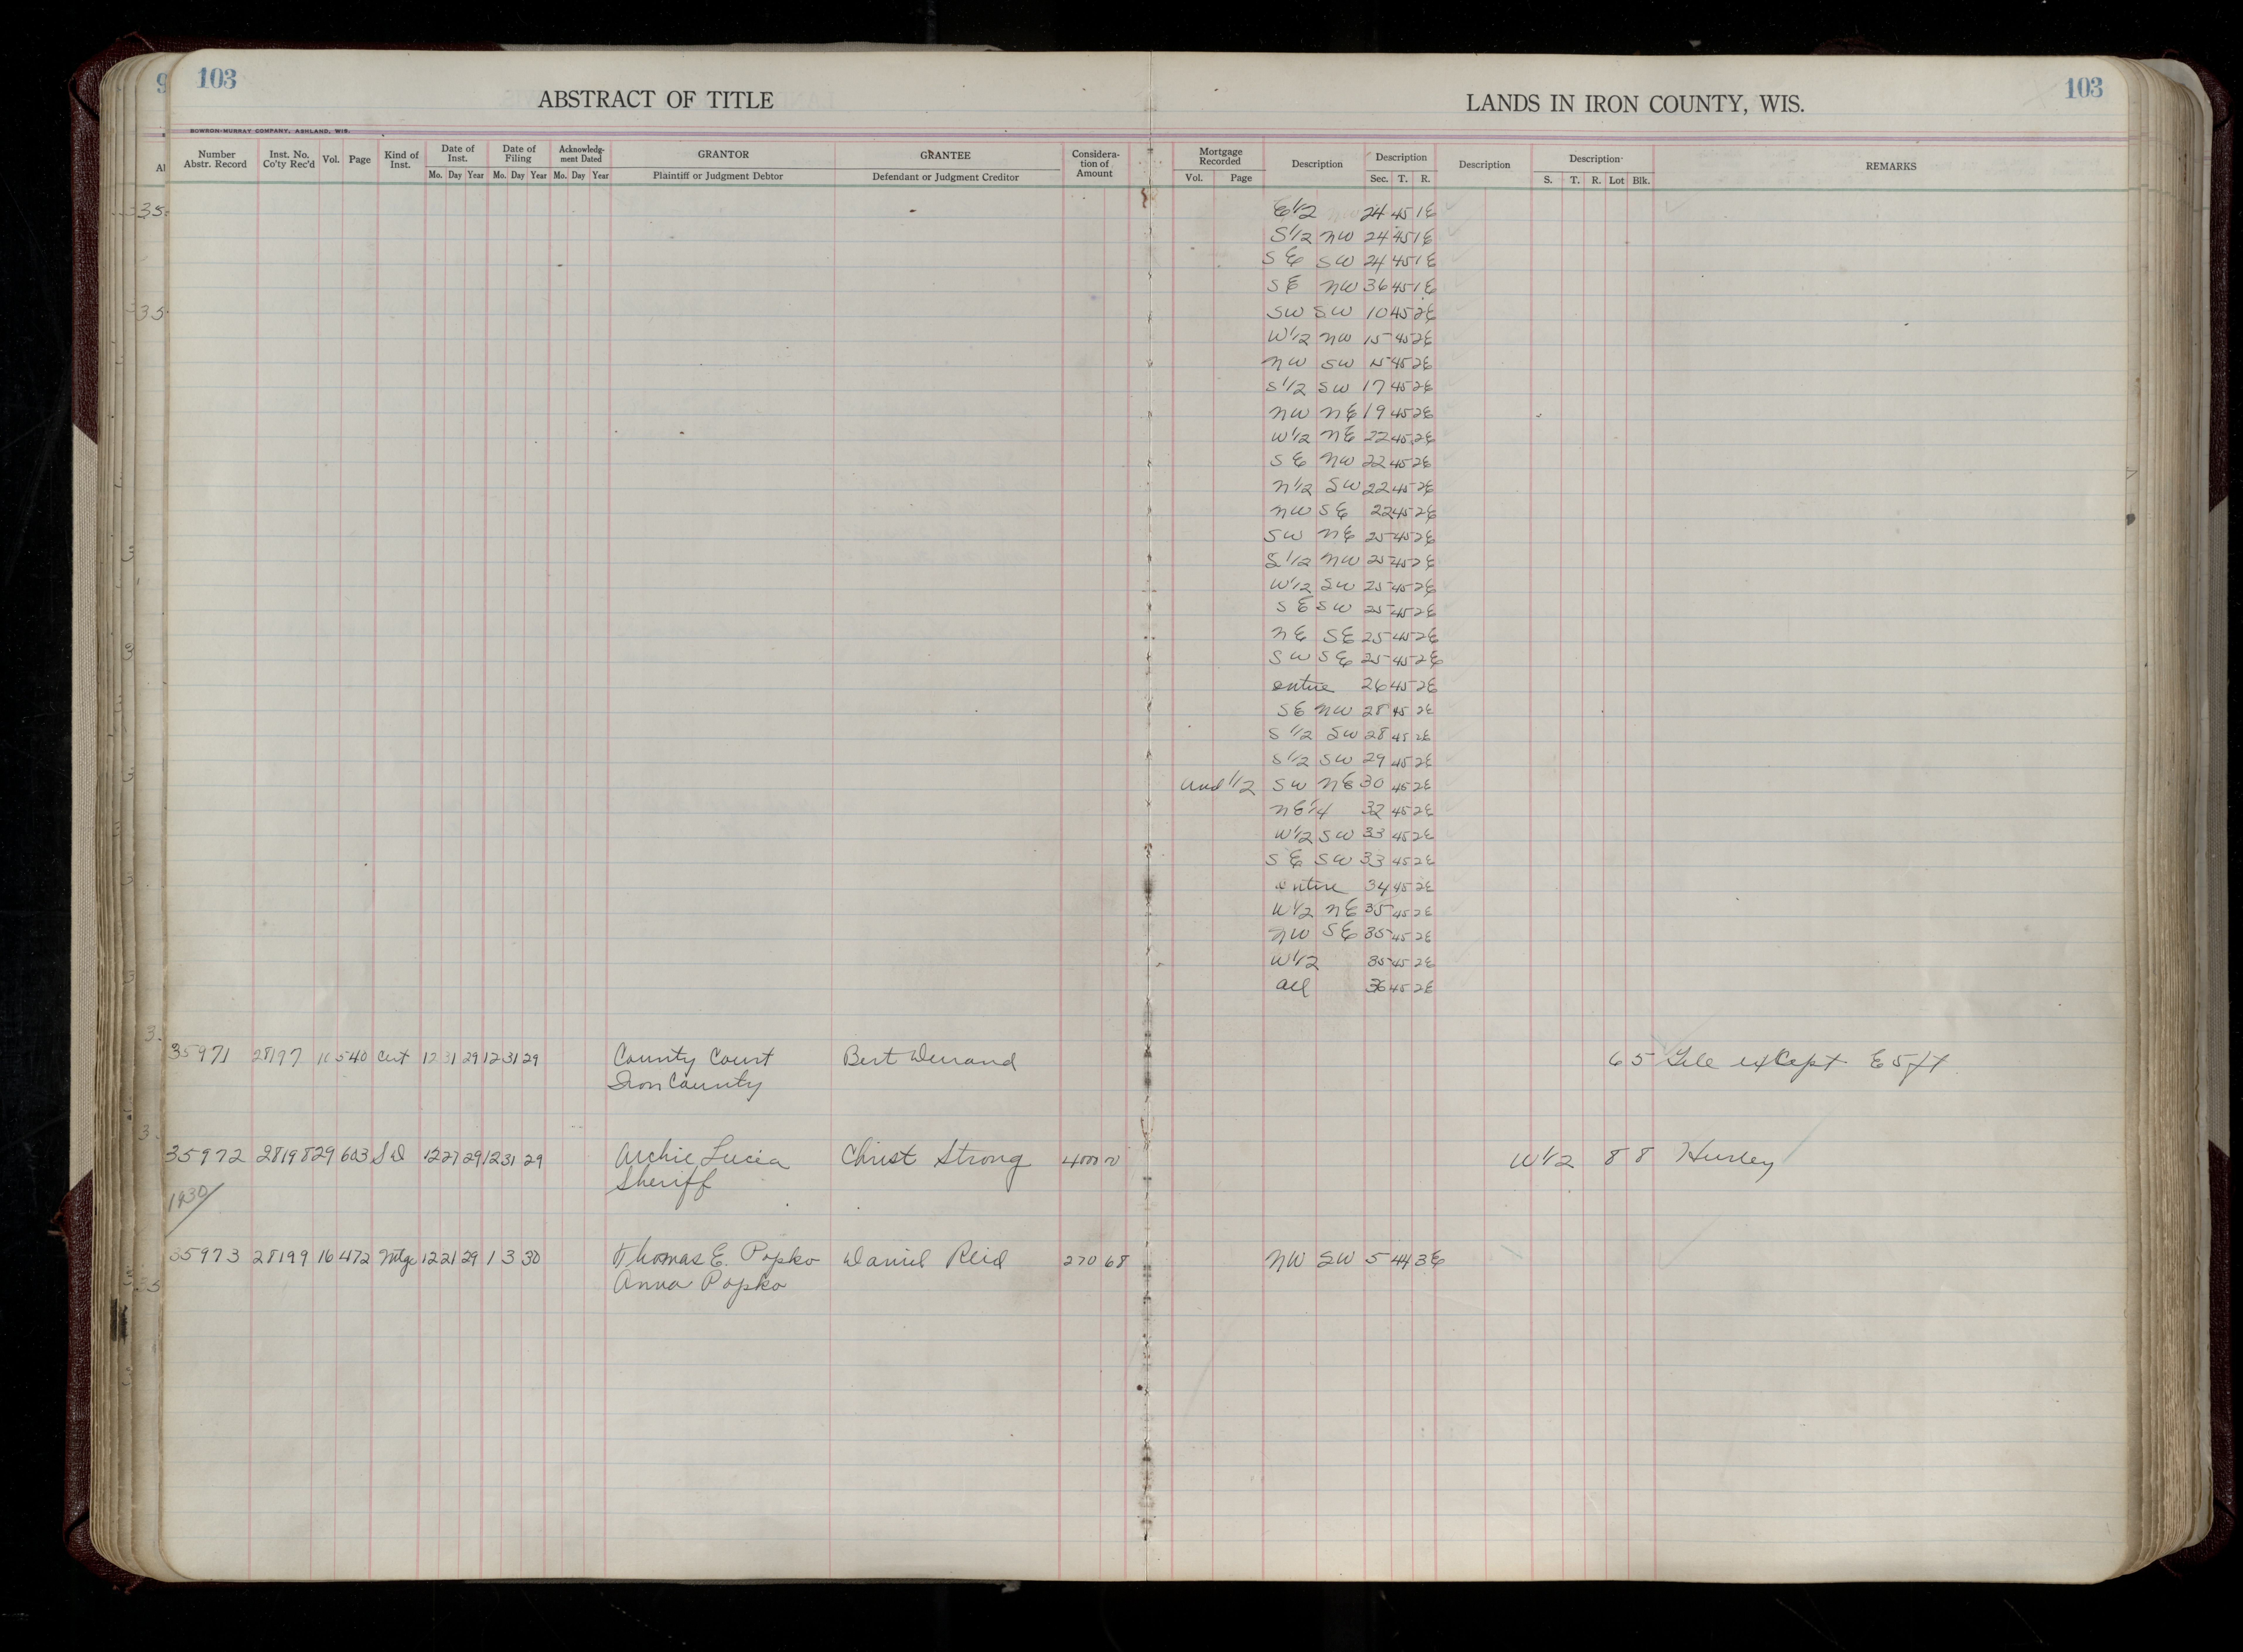 103
ABSTRACT OF TITLE
LANDS IN IRON COUNTY, WIS.
103
BOWRON-MURRAY COMPANY, ASHLAND, WIS.
Number Abstr. Record Inst. No. Co'ty Rec'd Vol. Page Kind of Inst. Date of Inst. Mo. Day Year Date of Filing Mo. Day Year Acknowledgment Dated Mo. Day Year GRANTOR Plaintiff or Judgment Debtor GRANTEE Defendant or Judgment Creditor Consideration of Amount
Mortgage Recorded Vol. Page Description Description Sec. T. R. Description Description S. T. R. Lot Blk. REMARKS
E1/2 24 45 1E
S1/2 NW 24 45 1E
SE SW 24 45 1E
SE NW 36 45 1E
SW SW 10 45 2E
W1/2 NW 15 45 2E
NW SW 15 45 2E
S1/2 SW 17 45 2E
NW NE 19 45 2E
W1/2 NE 22 45 2E
SE NW 22 45 2E
N1/2 SW 22 45 2E
NW SE 22 45 2E
SW NE 25 45 2E
S1/2 NW 25 45 2E
W1/2 SW 25 45 2E
SE SW 25 45 2E
NE SE 25 45 2E
SW SE 25 45 2E
entire 26 45 2E
SE NW 28 45 2E
S1/2 SW 28 45 2E
S1/2 SW 29 45 2E
Und 1/2 SW NE 30 45 2E
NE1/4 32 45 2E
W1/2 SW 33 45 2E
SE SW 33 45 2E
entire 34 45 2E
W1/2 NE 35 45 2E
NW SE 35 45 2E
W1/2 35 45 2E
all 36 45 2E
35971 28197 540 Cert 12 31 29 12 31 29 County Court Bert 6 5 except E 5 ft
Iron County
35972 28198 29 603 S D 12 27 29 12 31 29 Archie Lucia Christ Strong 4000 W1/2 8 8 Hurley
Sheriff
1930/
35973 28199 16 472 Mtge 12 21 29 1 3 30 Thomas E. Popko Daniel Reid 270 68 NW SW 5 44 3E
Anna Popko